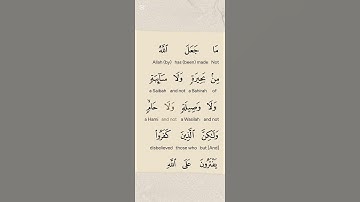 مَا جَعَلَ ٱللَّهُ
Allah (by) has (been) made Not
مِنۢ بَحِيرَةٍ وَلَا سَآئِبَةٍ
a Saibah and not a Bahirah of
وَلَا وَصِيلَةٍ وَلَا حَامٍ
a Hami and not a Wasilah and not
وَلَٰكِنَّ ٱلَّذِينَ كَفَرُوا۟
disbelieved those who but [And]
يَفْتَرُونَ عَلَى ٱللَّهِ